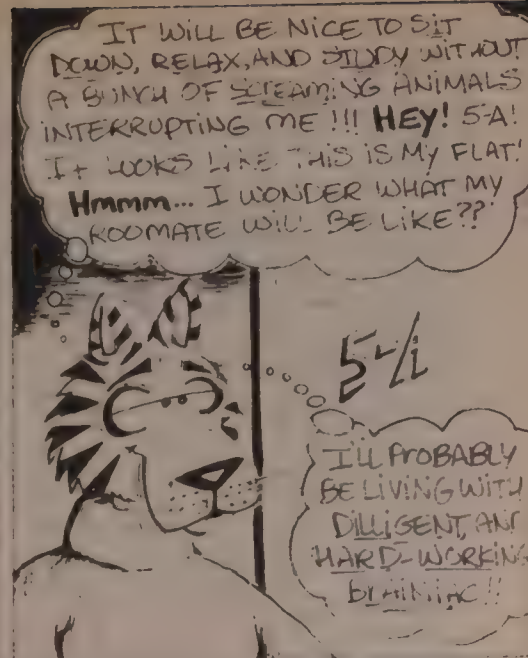 IT WILL BE NICE TO SIT
DOWN, RELAX, AND STUDY WITHOUT
A BUNCH OF SCREAMING ANIMALS
INTERRUPTING ME!!! HEY! 5-A!
IT LOOKS LIKE THIS IS MY FLAT!
Hmmm... I WONDER WHAT MY
ROOMATE WILL BE LIKE??
5-A
I'LL PROBABLY
BE LIVING WITH
DILLIGENT, AND
HARD-WORKING
BRAINIAC!!